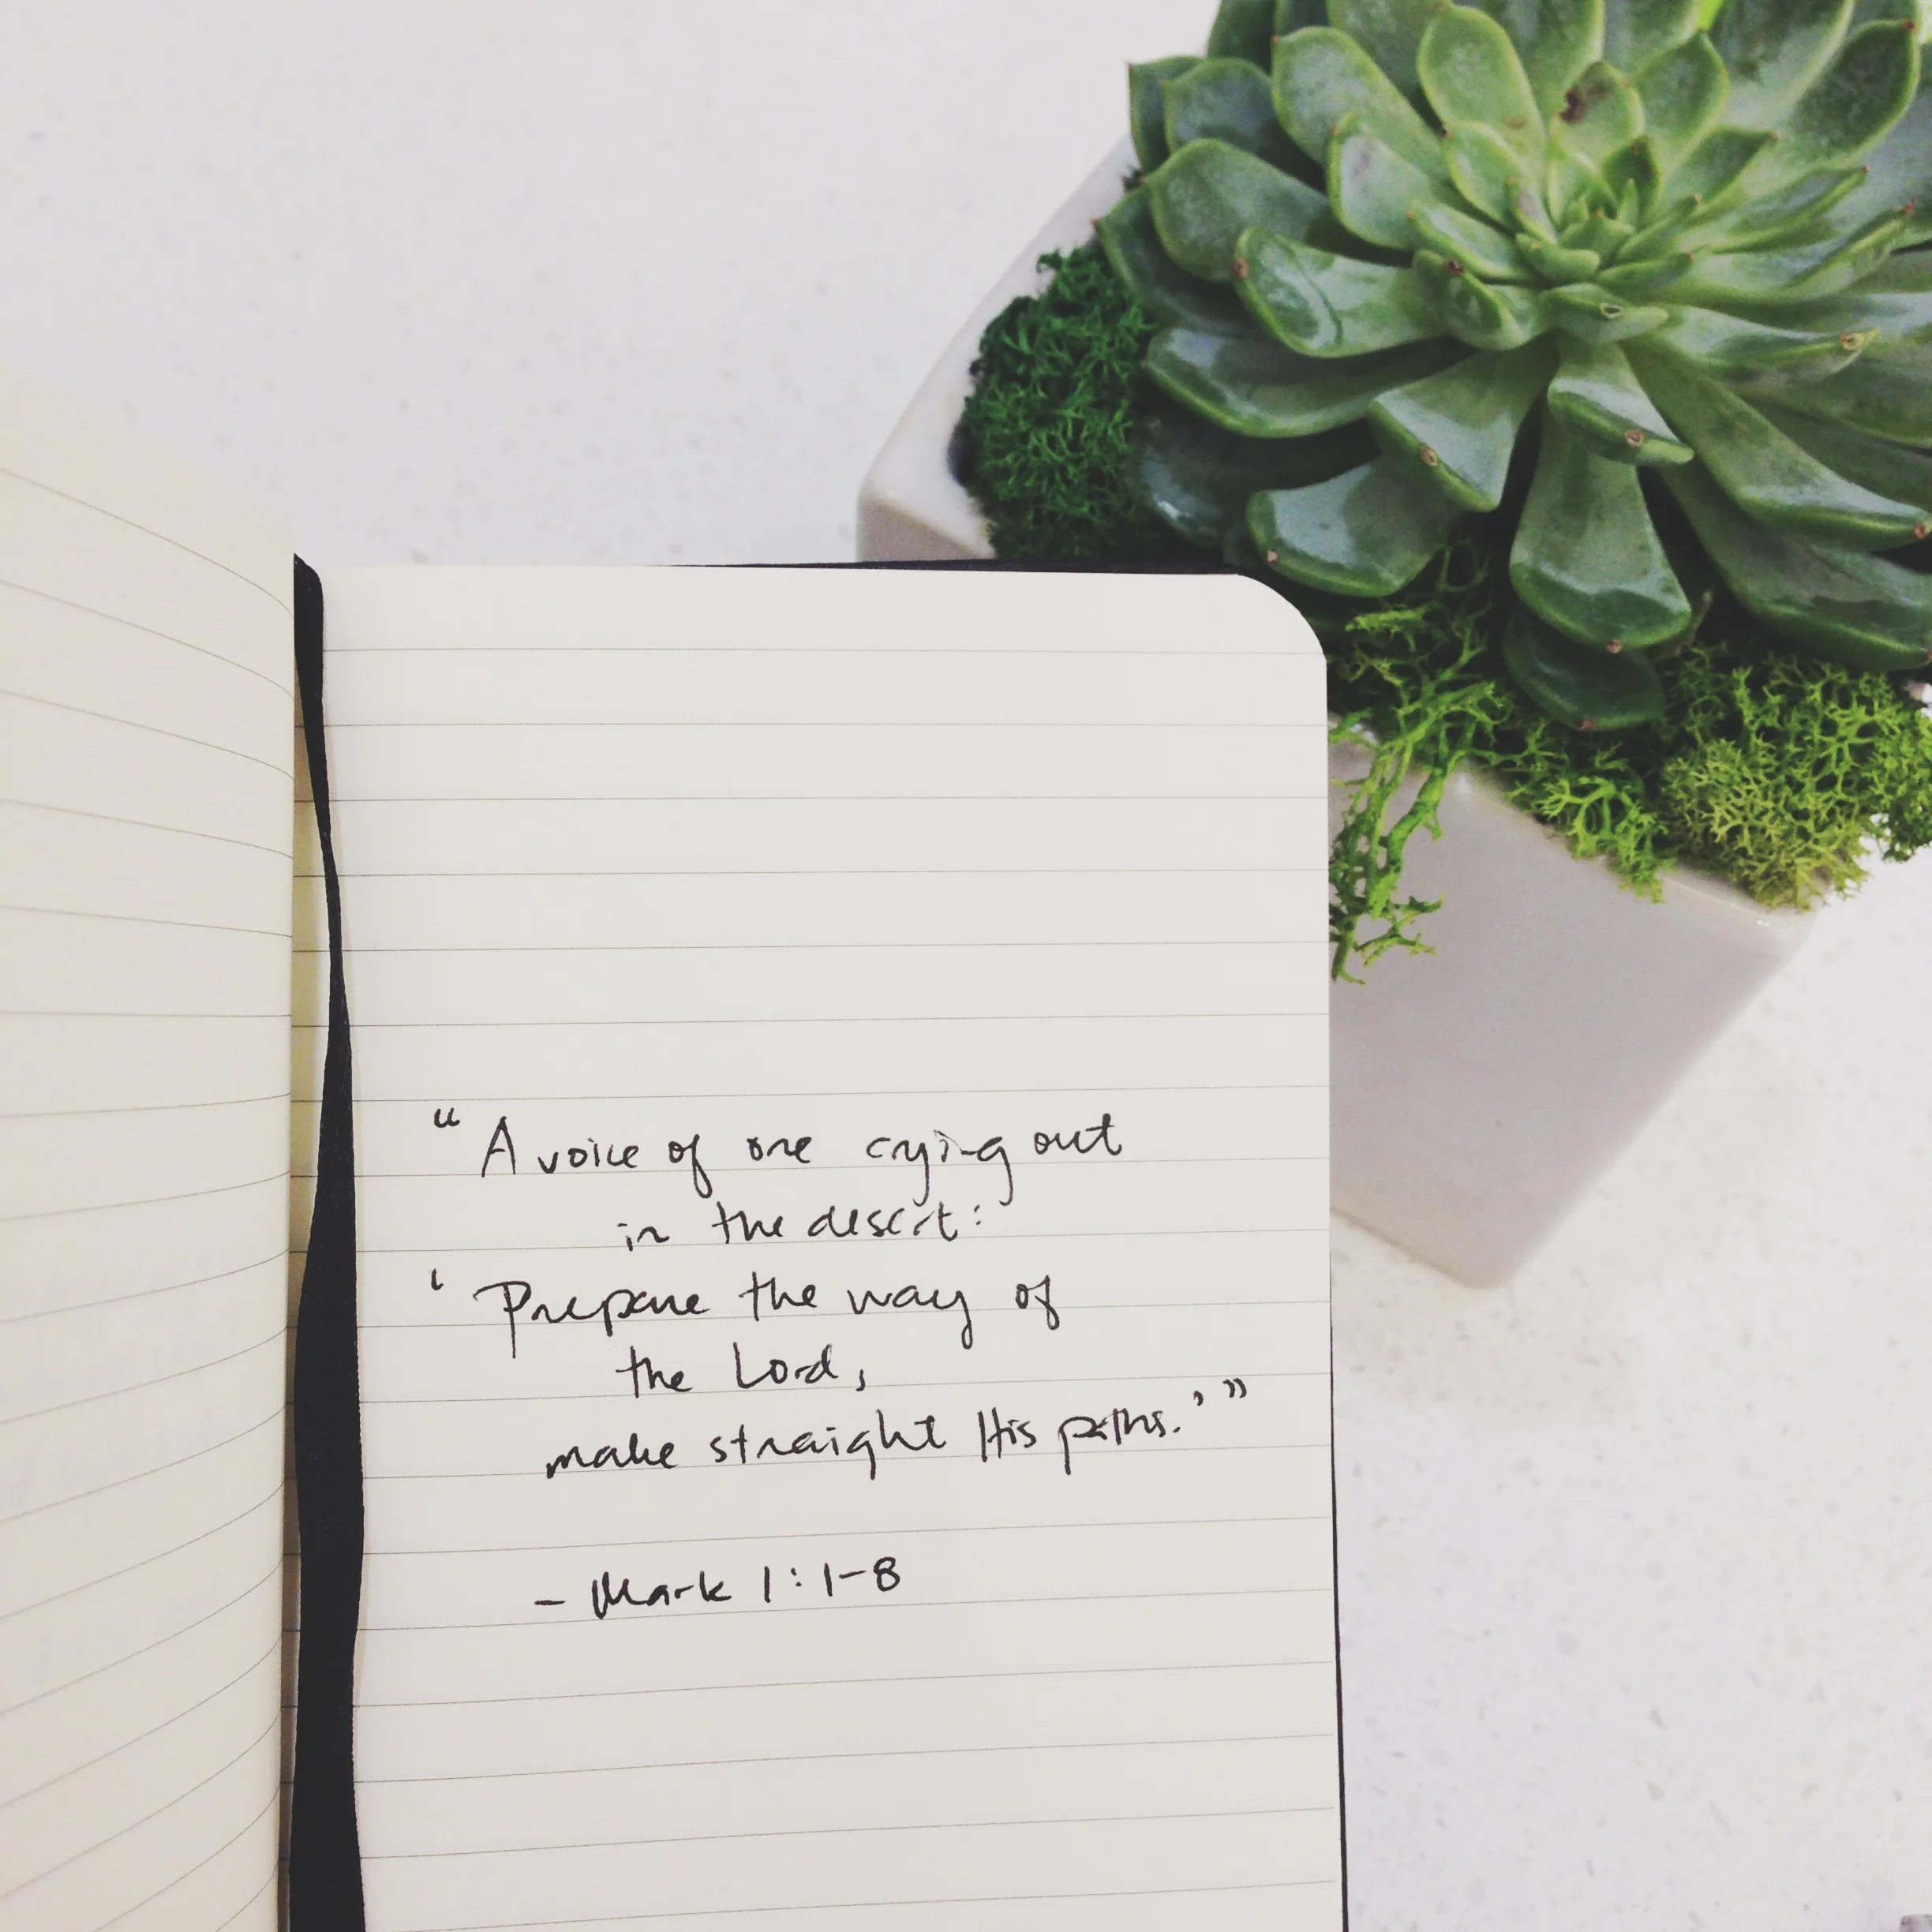 “A voice of one crying out
in the desert:
‘Prepare the way of
the Lord,
make straight His paths.’”
- Mark 1:1-8